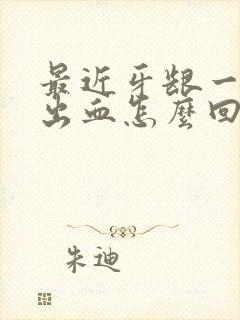 最近牙龈一
出血怎麼回
朱迪